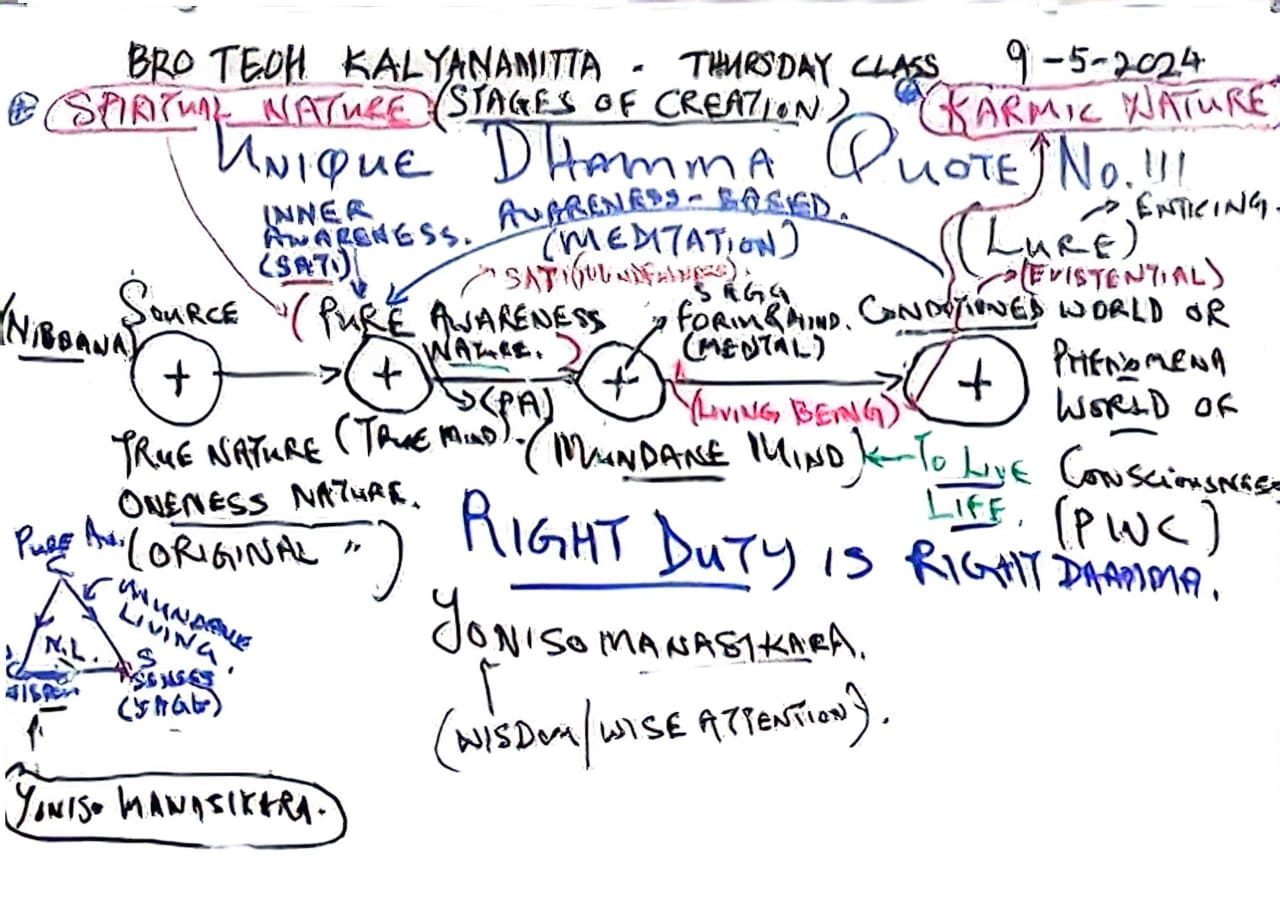 BRO TEOH KALYANAMITTA - THURSDAY CLASS 9-5-2024
SPIRITUAL NATURE (STAGES OF CREATION) KARMIC NATURE
UNIQUE DHAMMA QUOTE No. 111
INNER AWARENESS. (SATI)
AWARENESS-BASED.
(MEDITATION)
(LURE) → ENTICING.
SATI (MINDFULNESS).
(EXISTENTIAL)
(NIBBANA) SOURCE
(PURE AWARENESS NATURE.)
5 AGG
FORM & MIND.
(MENTAL)
CONDITIONED WORLD OR
PHENOMENA
WORLD OF
CONSCIOUSNESS
(PWC)
+ + + +
(PA)
(LIVING BEING)
TRUE NATURE (TRUE MIND). (MUNDANE MIND) ← TO LIVE
LIFE.
ONENESS NATURE.
(ORIGINAL ")
RIGHT DUTY IS RIGHT DHAMMA.
YONISO MANASIKARA.
(WISDOM/WISE ATTENTION).
PURE Aw.
MUNDANE
LIVING.
N.L.
S
SENSES
YONISO MANASIKARA.